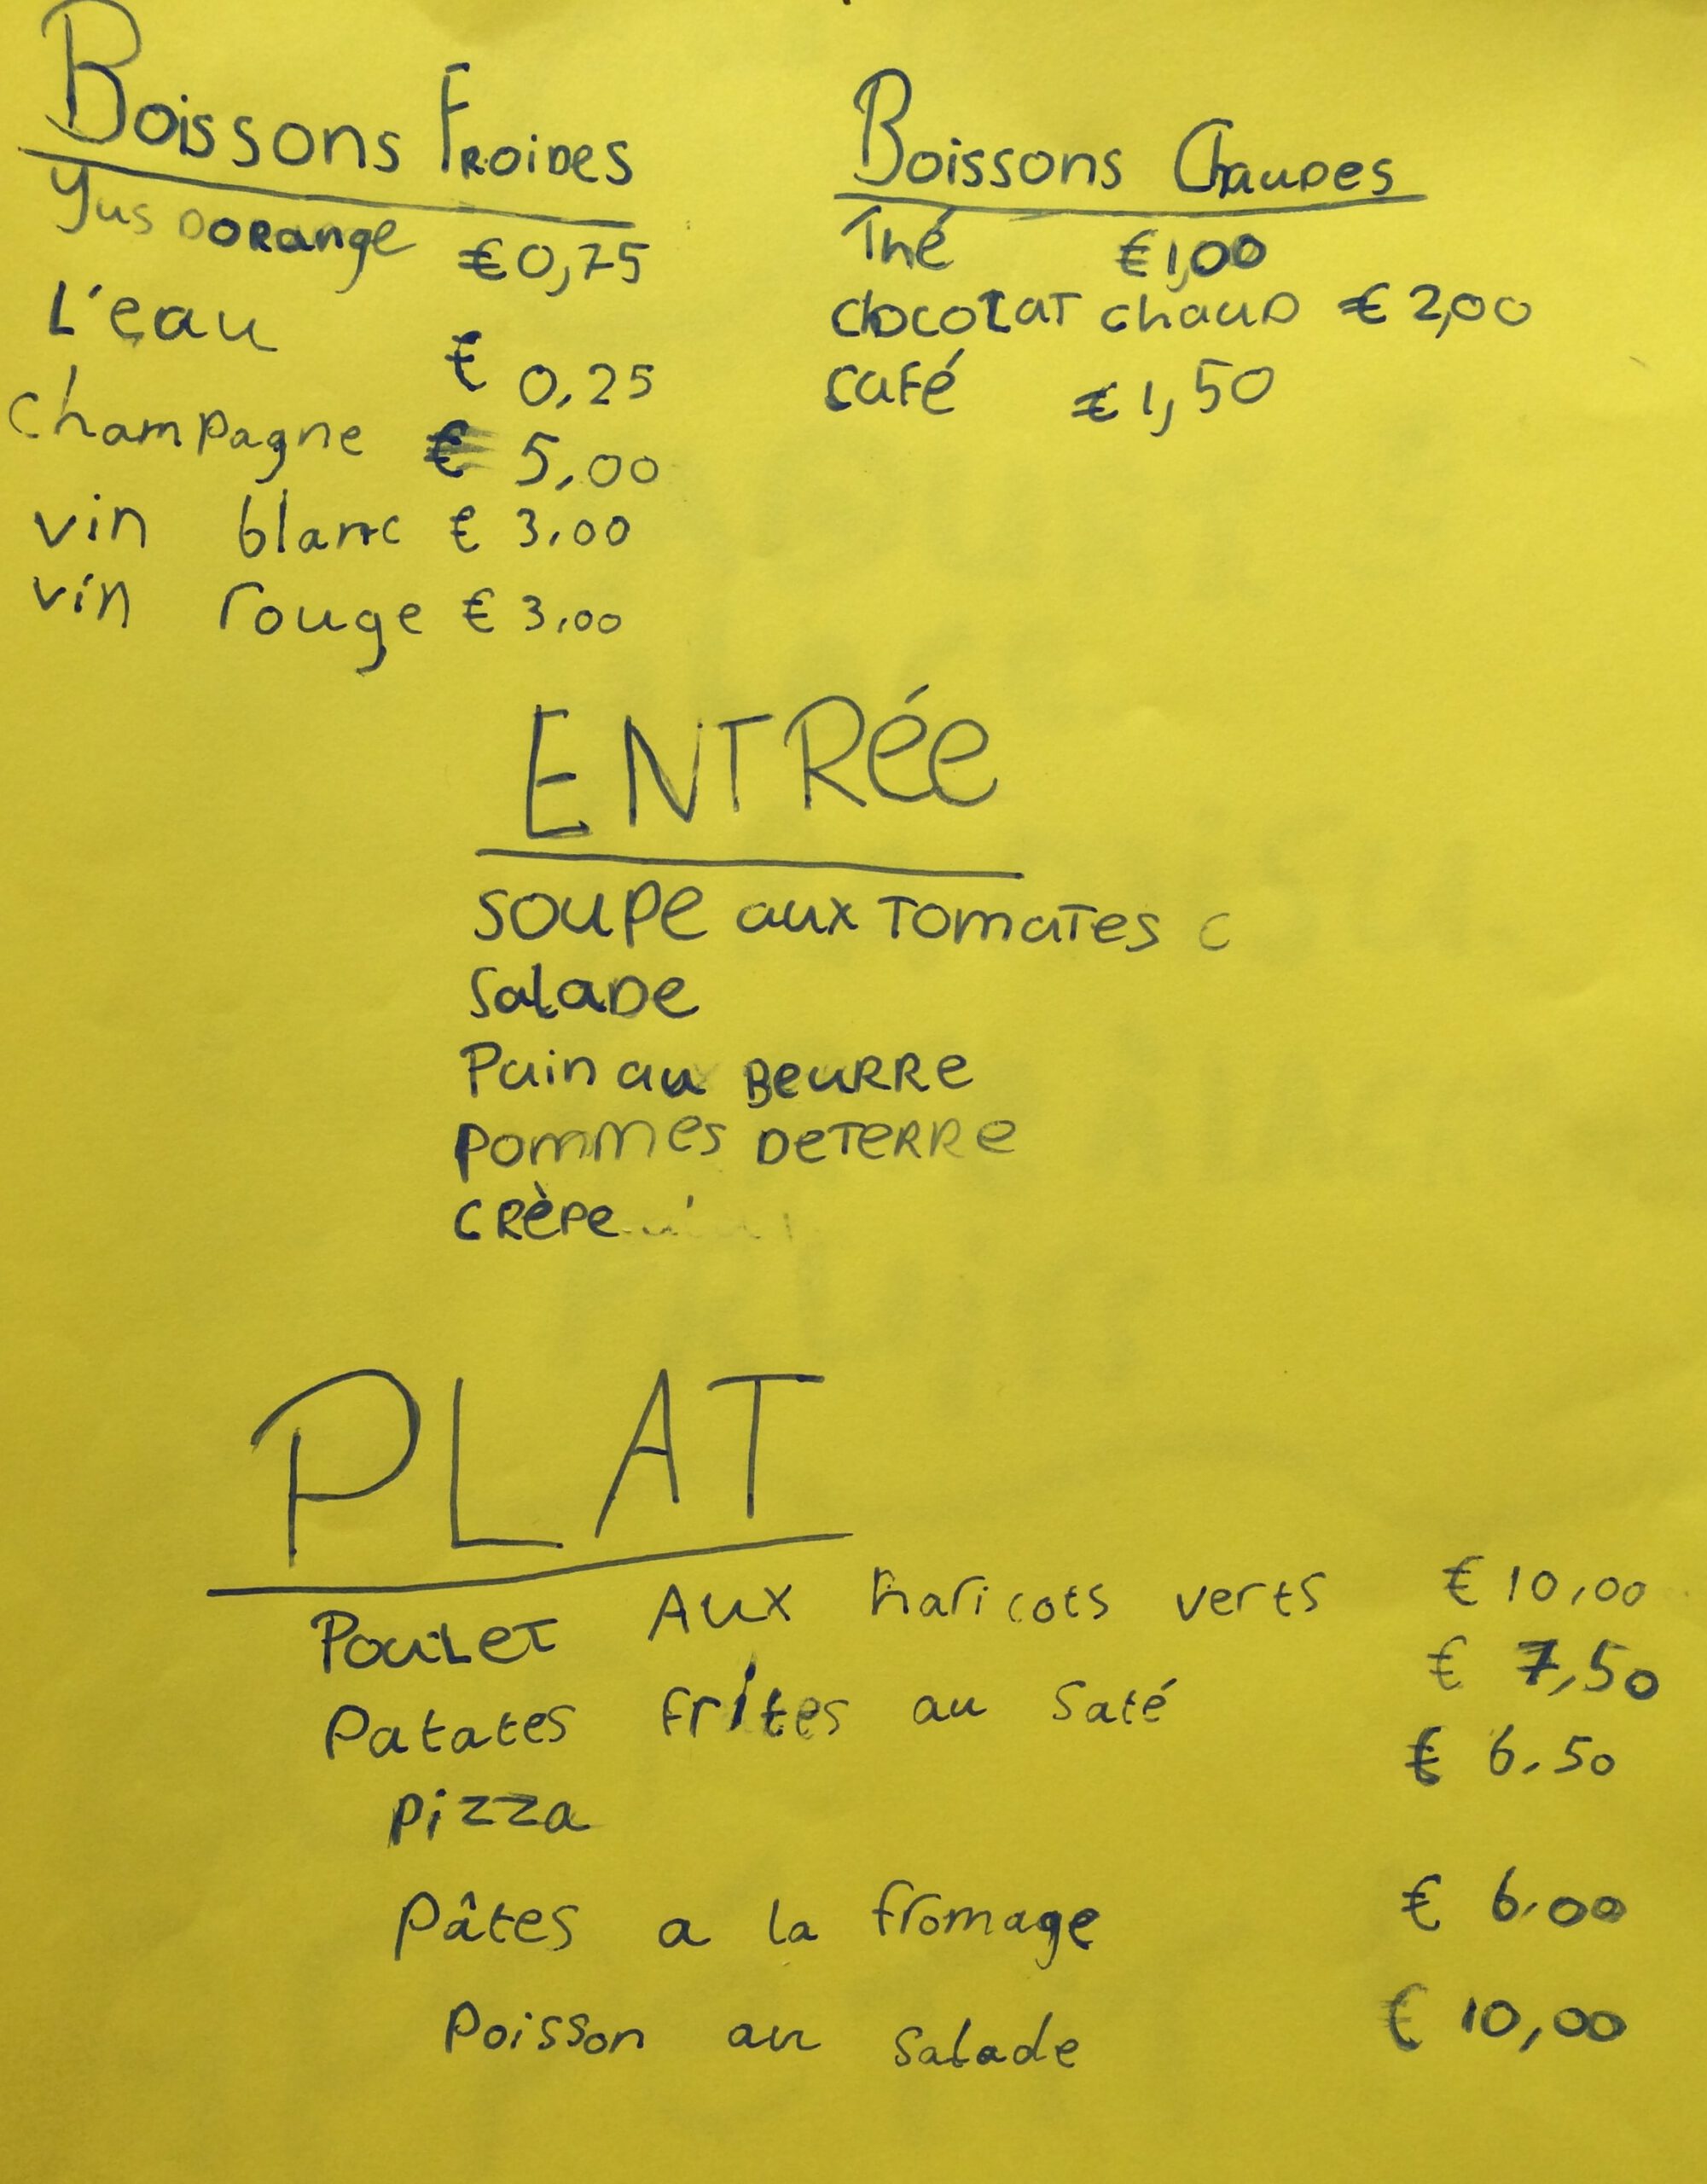 Boissons Froides
Yus dorange €0,75
L'eau € 0,25
champagne € 5,00
vin blanc € 3,00
vin rouge € 3,00
Boissons Chaudes
Thé €1,00
chocolat chaud €2,00
café €1,50
ENTRée
soupe aux tomates c
salade
Pain au Beurre
pommes de terre
crèpe
PLAT
Poulet Aux haricots verts € 10,00
Patates frites au saté € 7,50
pizza € 6,50
pâtes a la fromage € 6,00
poisson au salade € 10,00